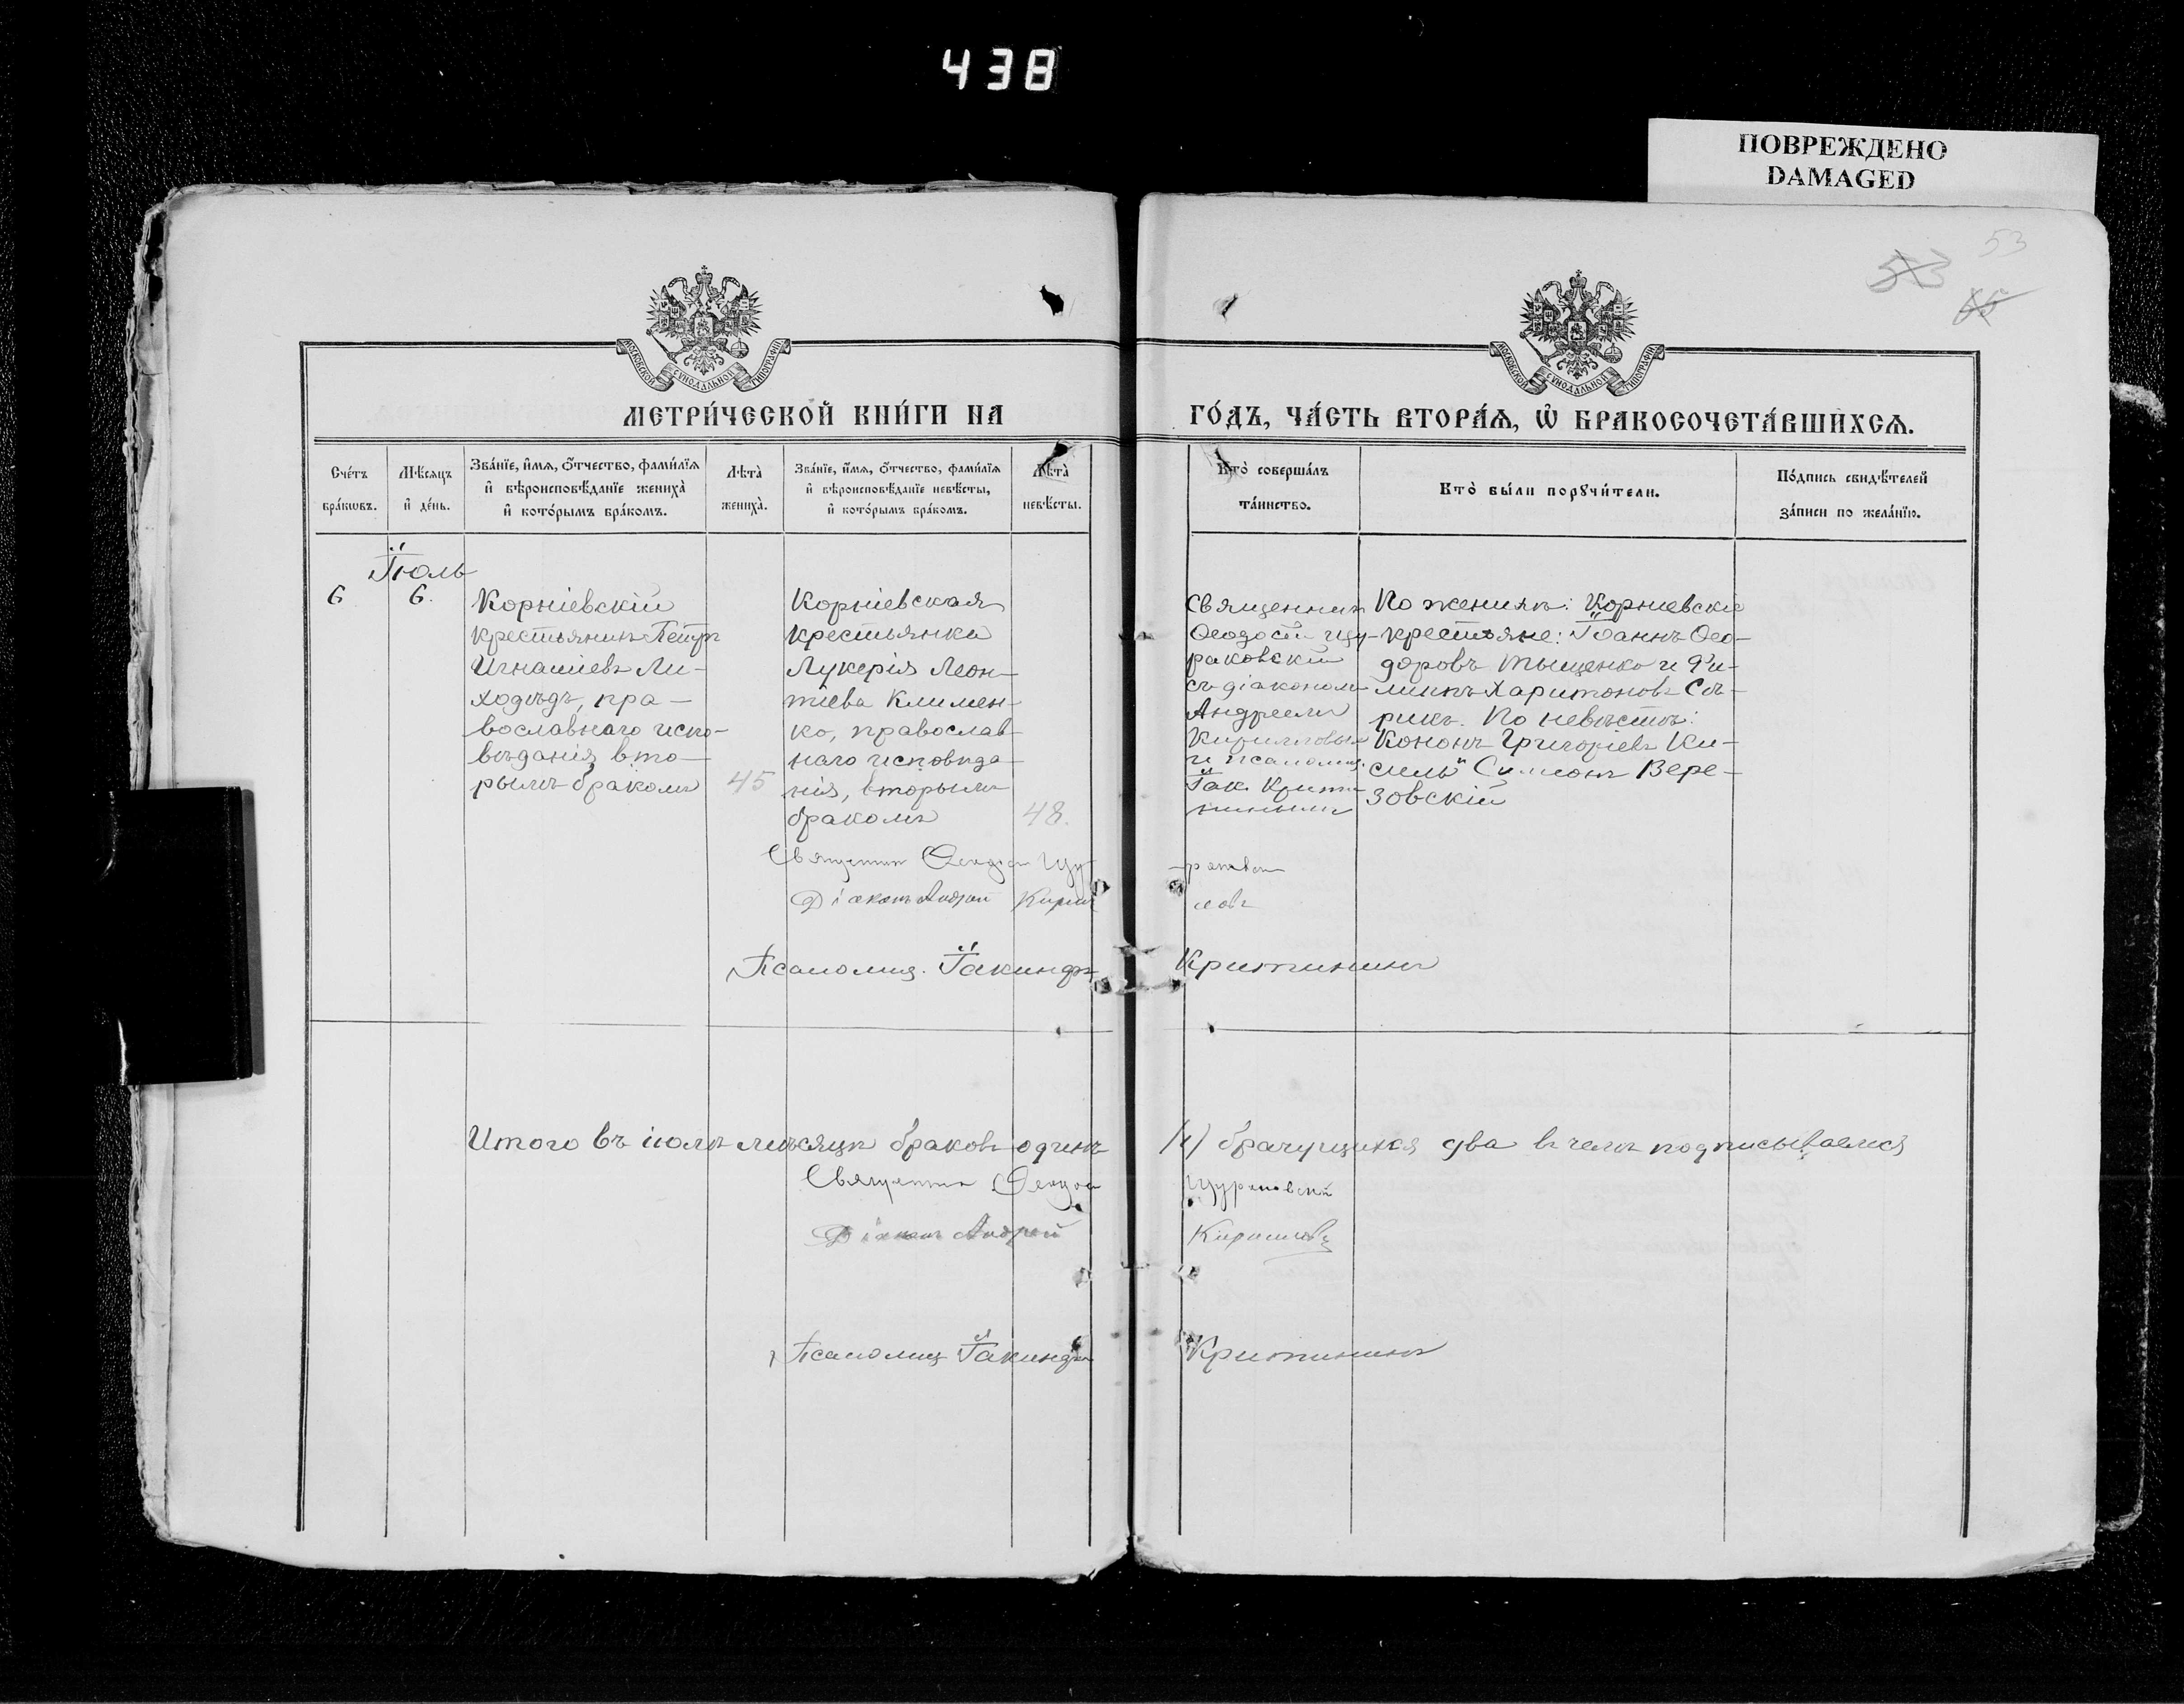 438
ПОВРЕЖДЕНО
DAMAGED
53
53
МОСКОВСКОЙ СѴНОДАЛЬНОЙ ТИПОГРАФІИ
МОСКОВСКОЙ СѴНОДАЛЬНОЙ ТИПОГРАФІИ
МЕТРИ́ЧЕСКОЙ КНИ́ГИ НА
ГО́ДЪ, ЧА́СТЬ ВТОРА́Ѧ, Ѽ БРАКОСОЧЕТА́ВШИХСѦ.
Сче́тъ бра́кѡвъ.
Мѣ́сѧцъ и҆ де́нь.
Зва́нїе, и҆́мѧ, ѻ҆́тчество, фами́лїѧ и҆ вѣроисповѣ́данїе жениха̀ и҆ кото́рымъ бра́комъ.
Лѣта̀ жениха̀.
Зва́нїе, и҆́мѧ, ѻ҆́тчество, фами́лїѧ и҆ вѣроисповѣ́данїе невѣ́сты, и҆ кото́рымъ бра́комъ.
Лѣта̀ невѣ́сты.
Кто̀ соверша́лъ та́инство.
Кто̀ бы́ли порꙋчи́тели.
По́дпись свидѣ́телей за́писи по жела́нїю.
Іюль
6
6.
Корніевскій
крестьянинъ Петръ
Игнатіевъ Ли-
ходѣдъ, пра-
вославнаго испо-
вѣданія вто-
рымъ бракомъ
45
Корніевская
крестьянка
Лукерія Леон-
тіева Климен-
ко, православ-
наго исповѣда-
нія, вторымъ
бракомъ
48.
Священникъ
Ѳеодосій Цу-
раковскій
съ діакономъ
Андреемъ
Кирилловымъ
и псаломщ.
Іак. Крити-
нинымъ
По женихѣ: Корніевскіе
крестьяне: Іоаннъ Ѳео-
доровъ Тыщенко и Фи-
липпъ Харитоновъ Сѣ-
рикъ. По невѣстѣ:
Кононъ Григоріевъ Ки-
силь Симеонъ Бере-
зовскій
Священникъ Ѳеодосій Цу-
-раковскій
Діаконъ Андрей Кирил
ловъ
Псаломщ. Іакинфъ Критининъ
Итого въ іюлѣ мѣсяцѣ браковъ одинъ (1) брачущихся два въ чемъ подписываемся
Священникъ Ѳеодосій Цураковскій
Діаконъ Андрей Кирилловъ
Псаломщ Іакинфъ Критининъ